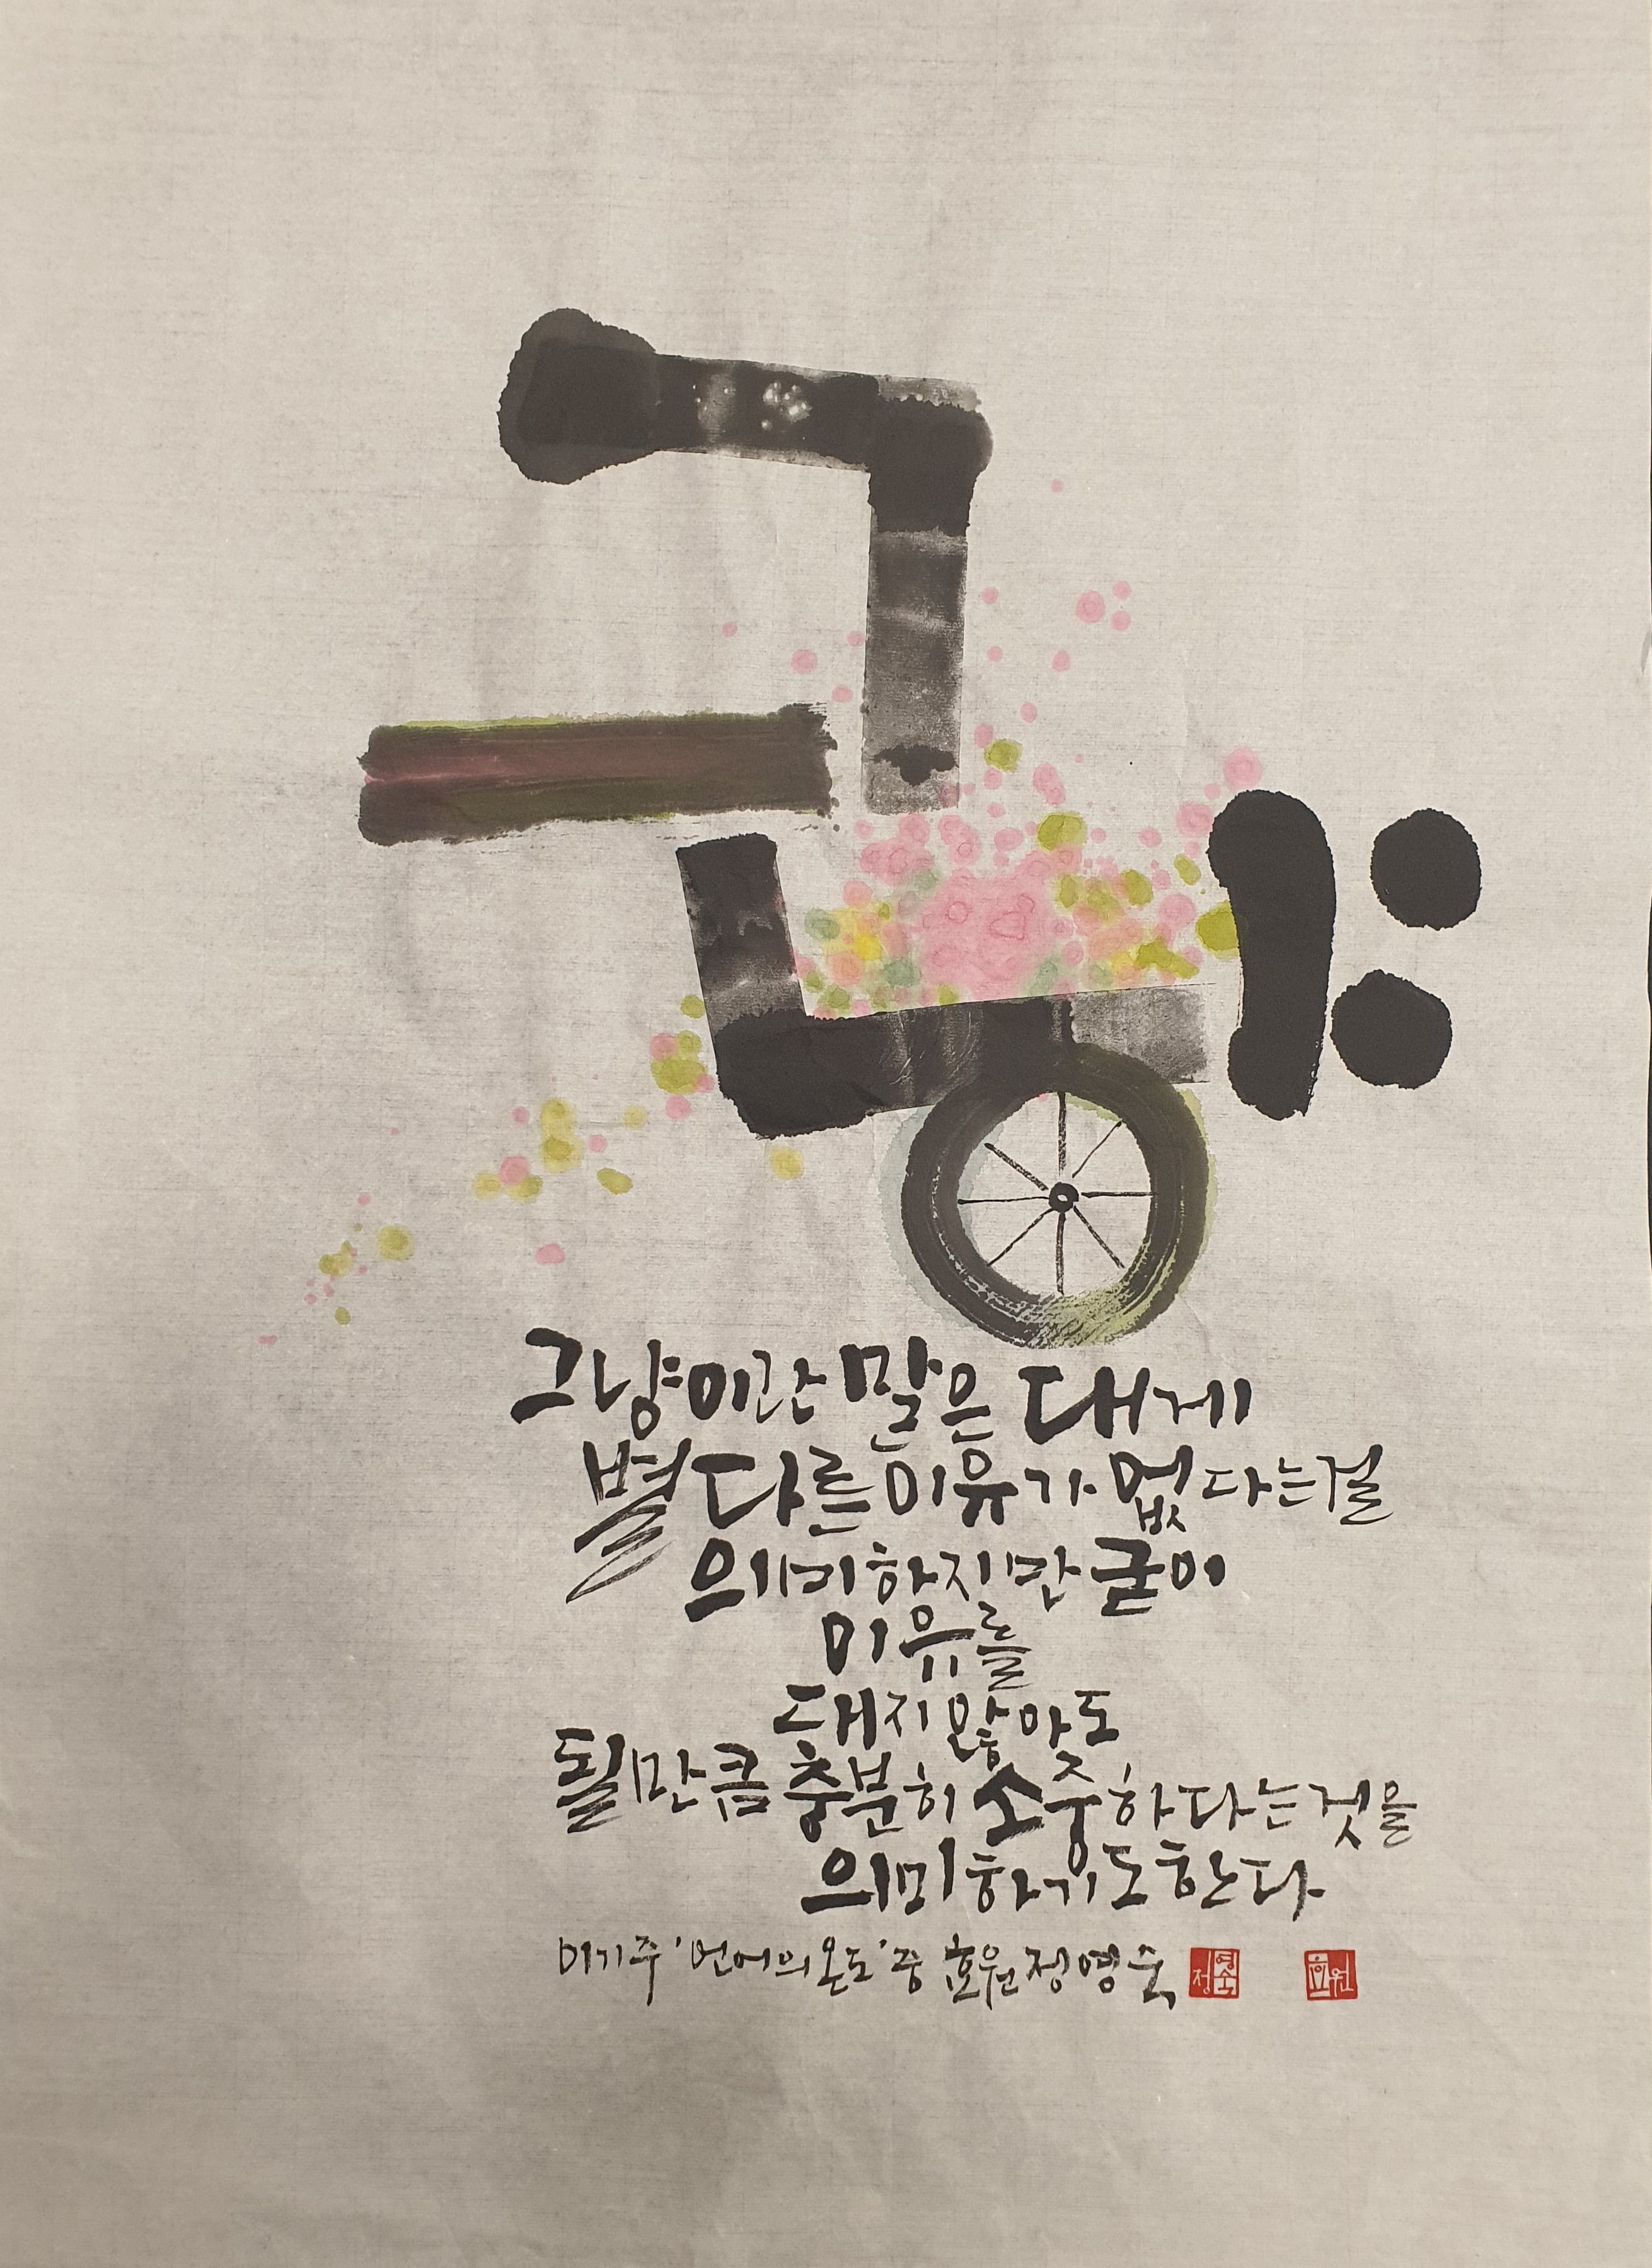 그냥
그냥이란 말은 대게
별다른 이유가 없다는걸
의미하지만 굳이
이유를
대지않아도
될만큼 충분히 소중하다는것을
의미하기도한다
이기주 '언어의온도' 중 효원 정영숙
정영숙 효원